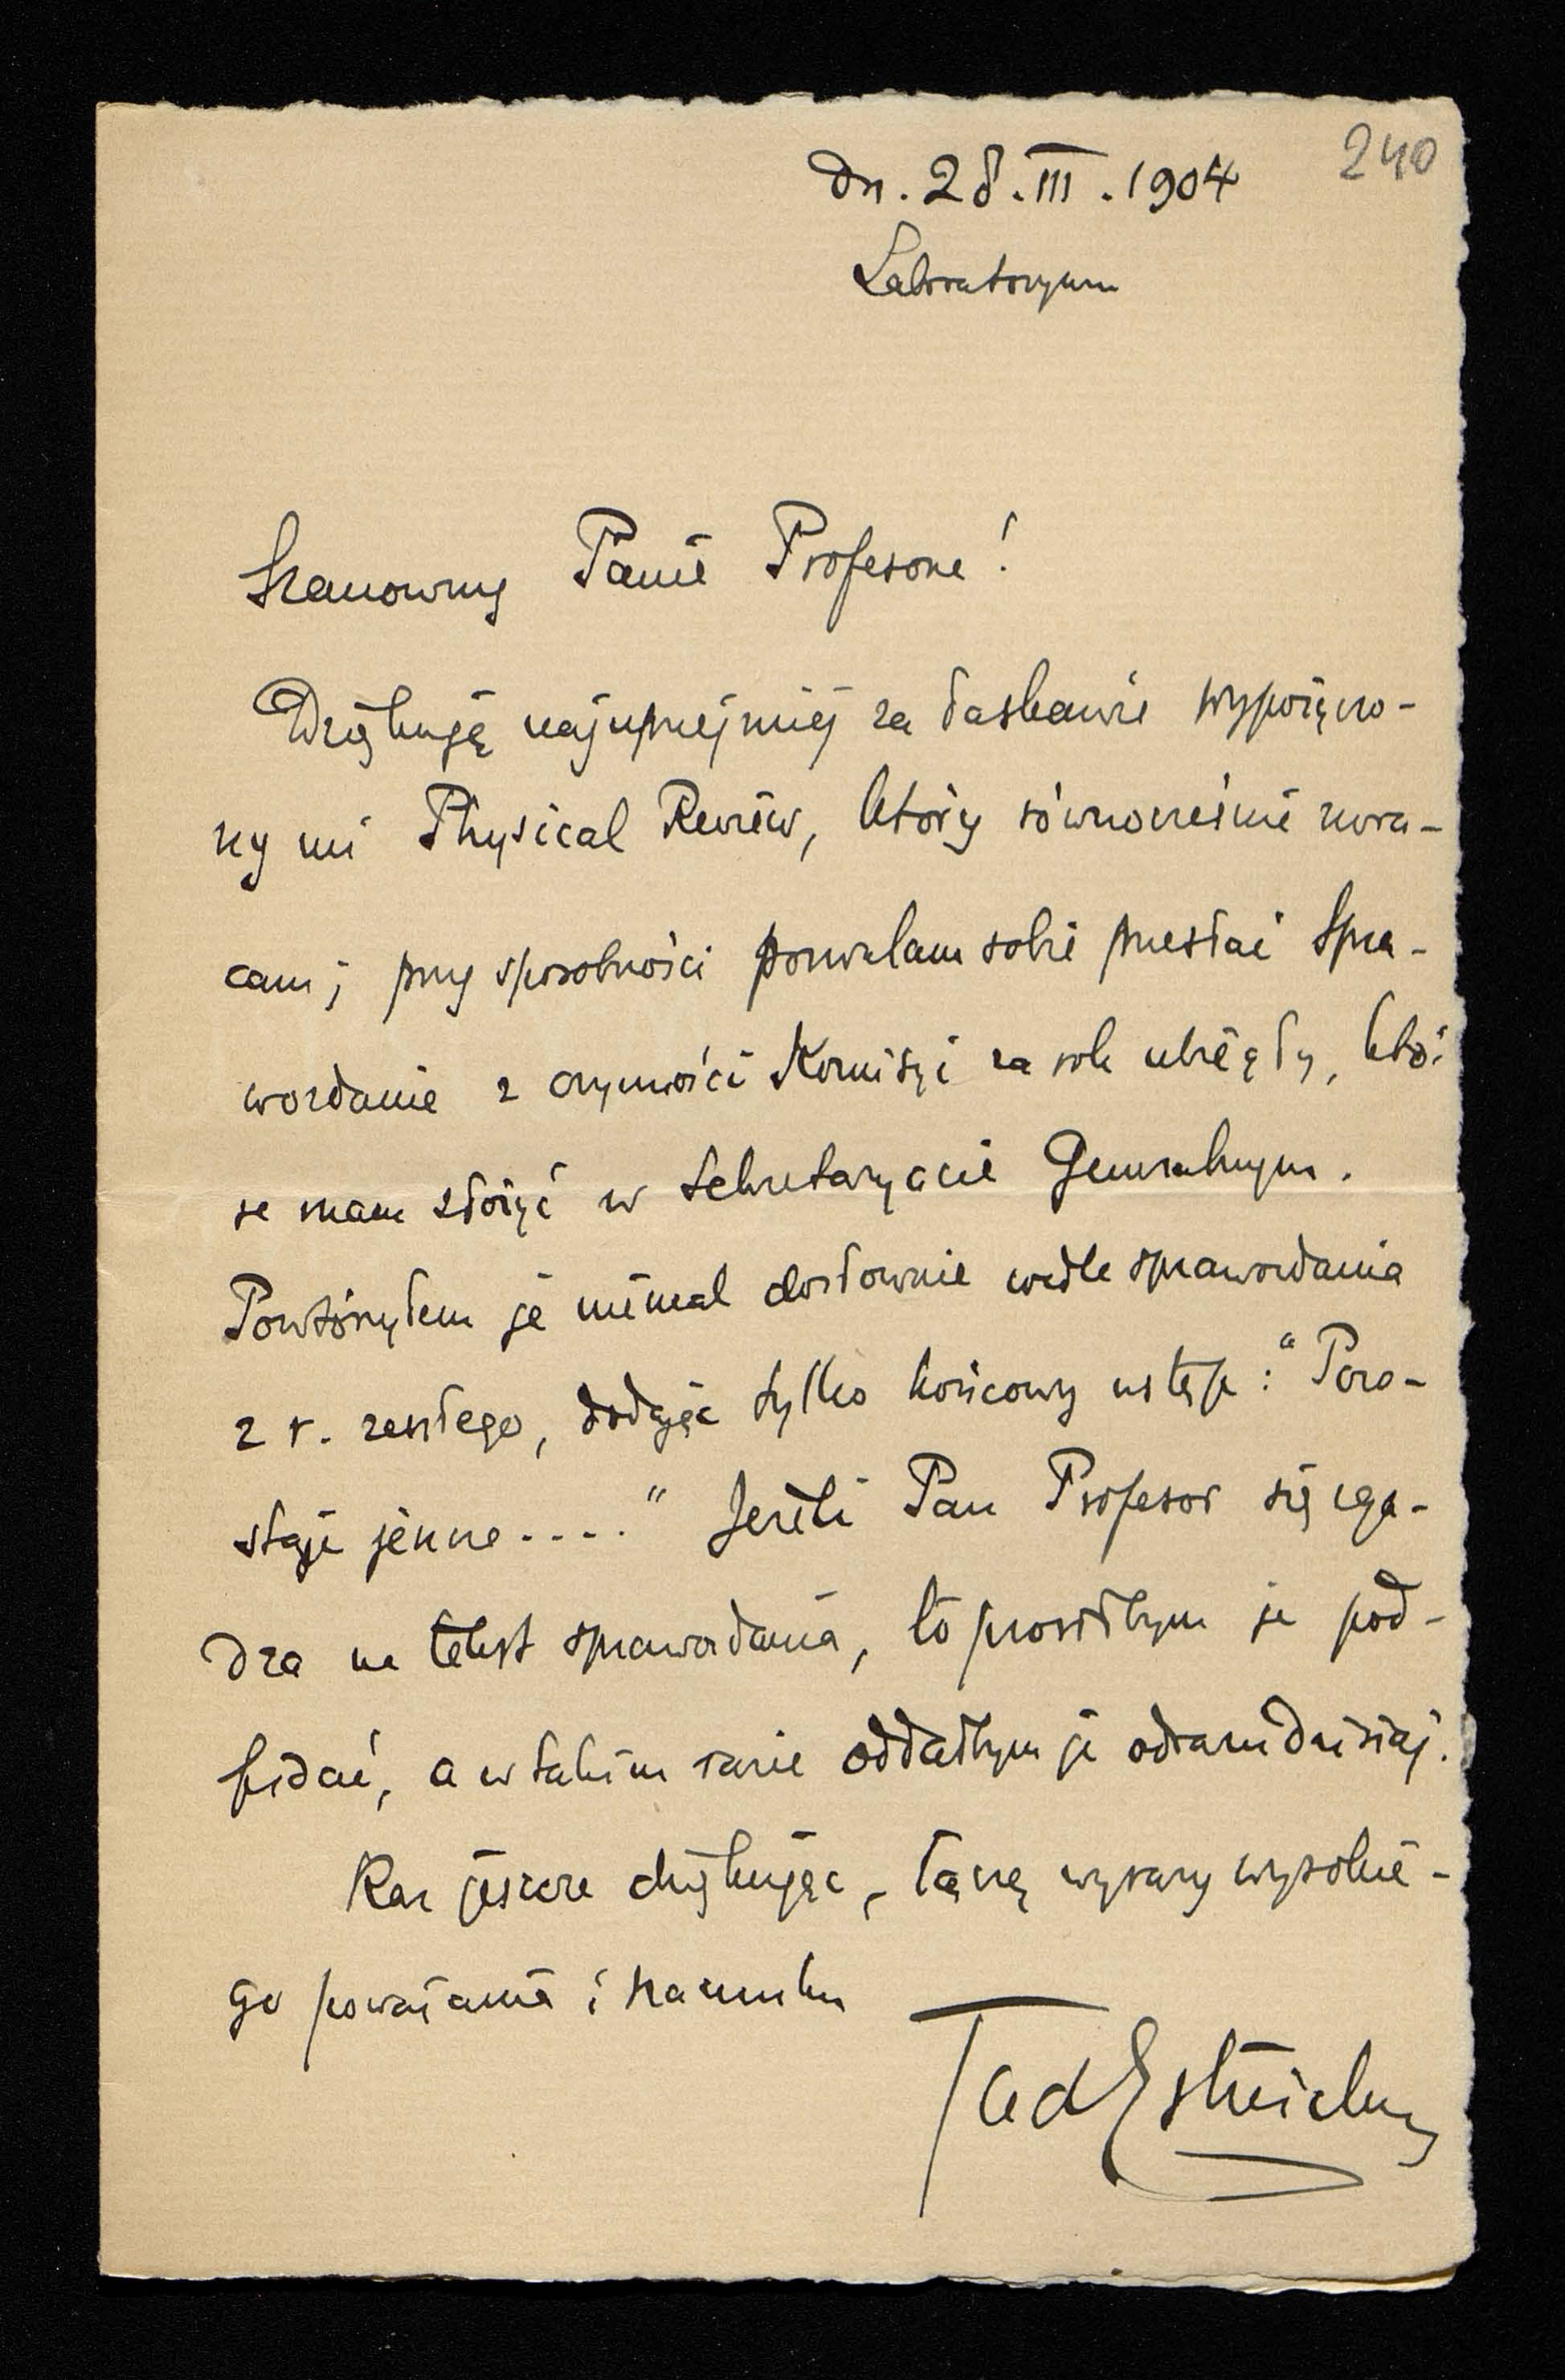 240
dn. 28.III.1904
Laboratoryum
Szanowny Panie Profesorze!
Dziękuję najuprzejmiej za łaskawie wypożyczo-
ny mi Physical Review, który równocześnie zwra-
cam; przy sposobności pozwalam sobie przesłać Spra-
wozdanie z czynności Komisyi za rok ubiegły, któ-
re mam złożyć w Sekretaryacie Generalnym.
Powtórzyłem je niemal dosłownie wedle sprawozdania
z r. zeszłego, dodając tylko końcowy ustęp: "Pozo-
staje jeszcze...." Jeżeli Pan Profesor się zga-
dza na tekst sprawozdania, to prosiłbym je pod-
pisać, a w takim razie oddałbym je odrazu dzisiaj.
Raz jeszcze dziękując, łączę wyrazy wysokie-
go poważania i szacunku
Tad Estreicher